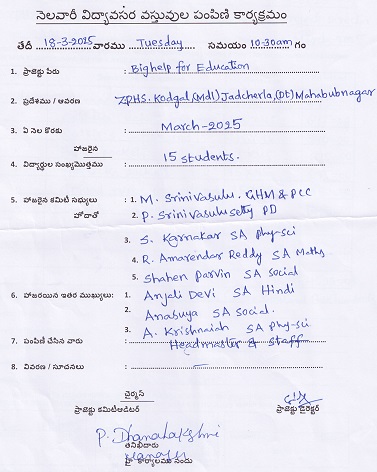 నెలవారీ విద్యావసర వస్తువుల పంపిణి కార్యక్రమం
తేదీ 18-3-2025 వారము Tuesday సమయం 10:30am గం
1. ప్రాజెక్టు పేరు : Bighelp for Education
2. ప్రదేశము / ఆవరణ : ZPHS. Kodgal, (Mdl) Jadcherla, (Dt) Mahabubnagar
3. ఏ నెల కొరకు : March-2025
హాజరైన
4. విద్యార్థుల సంఖ్యమొత్తము : 15 students.
5. హాజరైన కమిటీ సభ్యులు : 1. M. Srinivasulu. GHM & PCC
హోదాతో 2. P. Srinivasulu setty PD
3. S. Karnakar SA phy-sci
4. R. Amarendar Reddy SA Maths
5. Shahen Parvin SA Social
6. హాజరయిన ఇతర ముఖ్యులు: 1. Anjali Devi SA Hindi
2. Anasuya SA social.
3. A. Krishnaiah SA phy-sci
7. పంపిణీ చేసిన వారు : Headmaster & Staff
8. వివరణ / సూచనలు :
చైర్మన్
ప్రాజెక్టు కమిటీఆడిటర్ ప్రాజెక్టు డైరెక్టర్
P. Dhanalakshmi
తనిఖీదారు